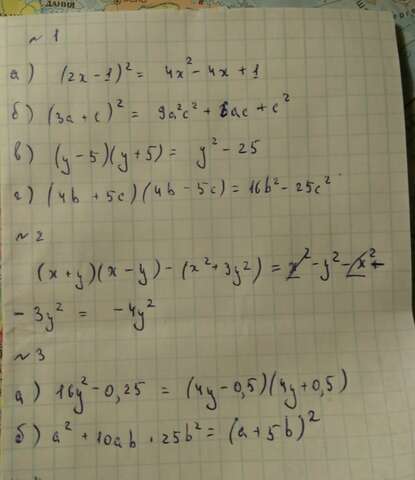 ДАНИЯ
~ 1
а) (2x - 1)² = 4x² - 4x + 1
б) (3a + c)² = 9a²c² + 6ac + c²
в) (y - 5)(y + 5) = y² - 25
г) (4b + 5c)(4b - 5c) = 16b² - 25c²
~ 2
(x + y)(x - y) - (x² + 3y²) = x² - y² - x² -
- 3y² = -4y²
~ 3
а) 16y² - 0,25 = (4y - 0,5)(4y + 0,5)
б) a² + 10ab + 25b² = (a + 5b)²